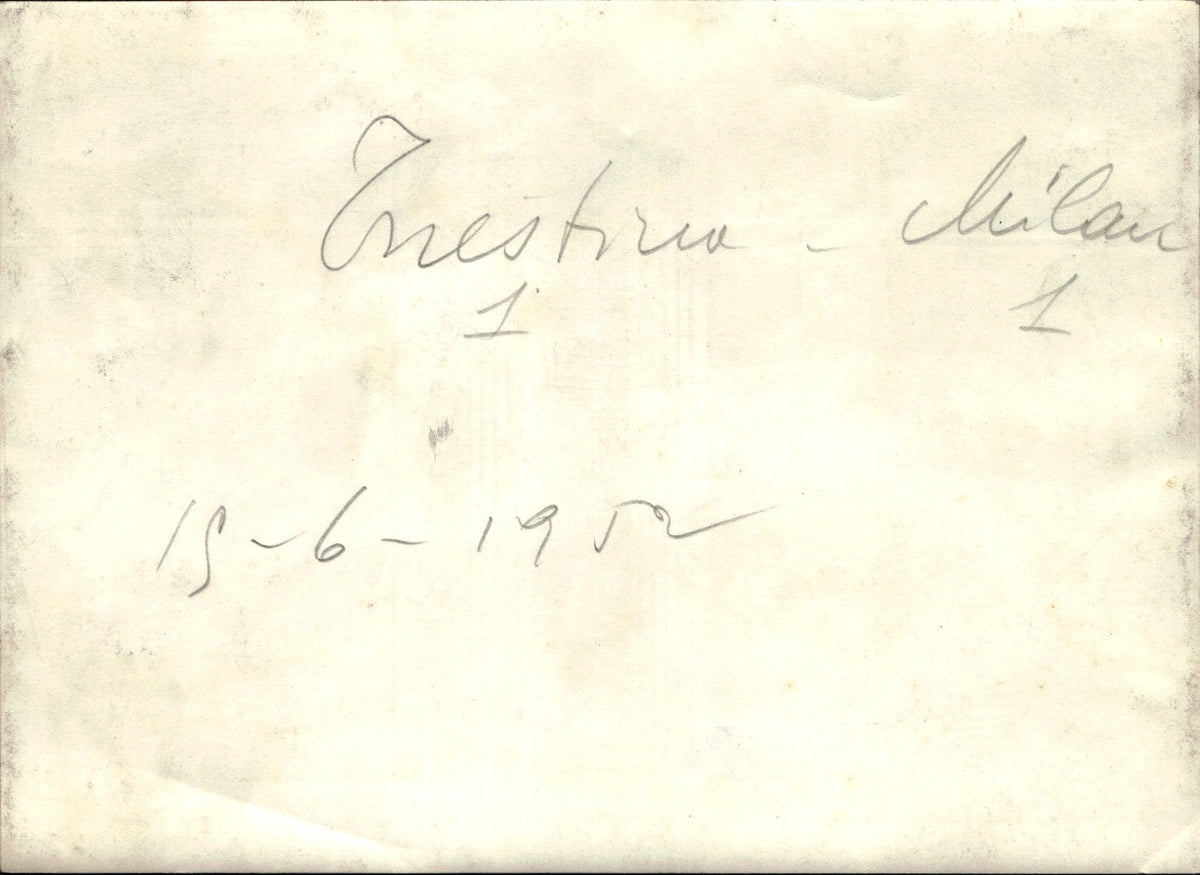 Triestina - Milan
1 1
15-6-1952